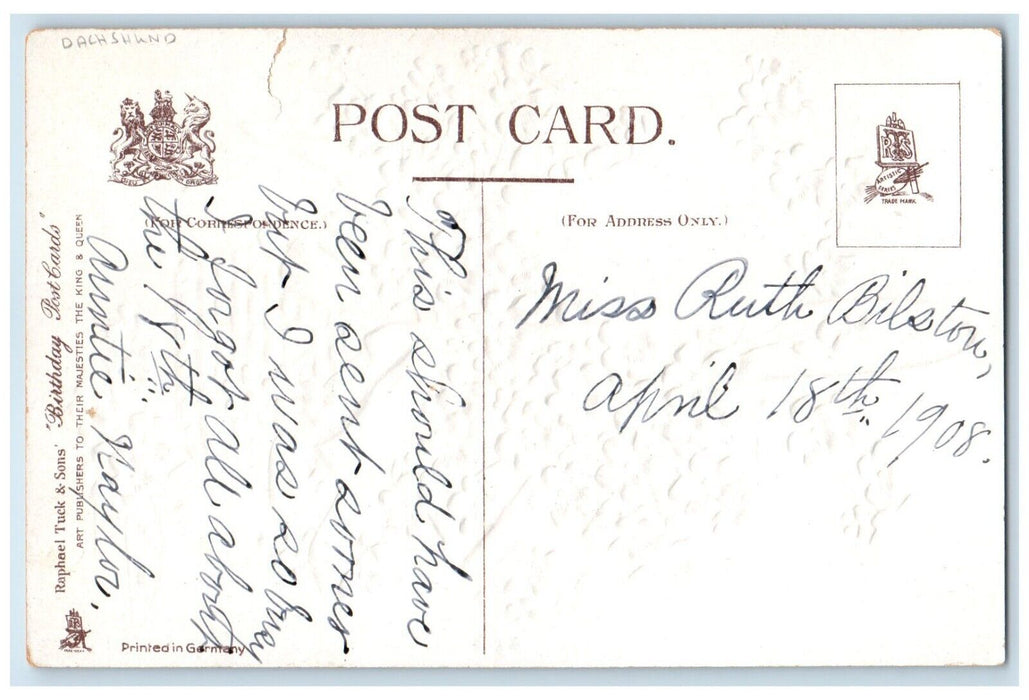 DACHSHUND
POST CARD.
DIEU DROIT
(FOR CORRESPONDENCE.)
(FOR ADDRESS ONLY.)
R T S
ARTISTIC
SERIES
TRADE MARK.
This should have
been sent sooner
but I was so busy
I forgot all about
the 18th
Auntie Naylor,
Miss Ruth Bilston,
April 18th, 1908.
Raphael Tuck & Sons' "Birthday Post Cards"
ART PUBLISHERS TO THEIR MAJESTIES THE KING & QUEEN
Printed in Germany